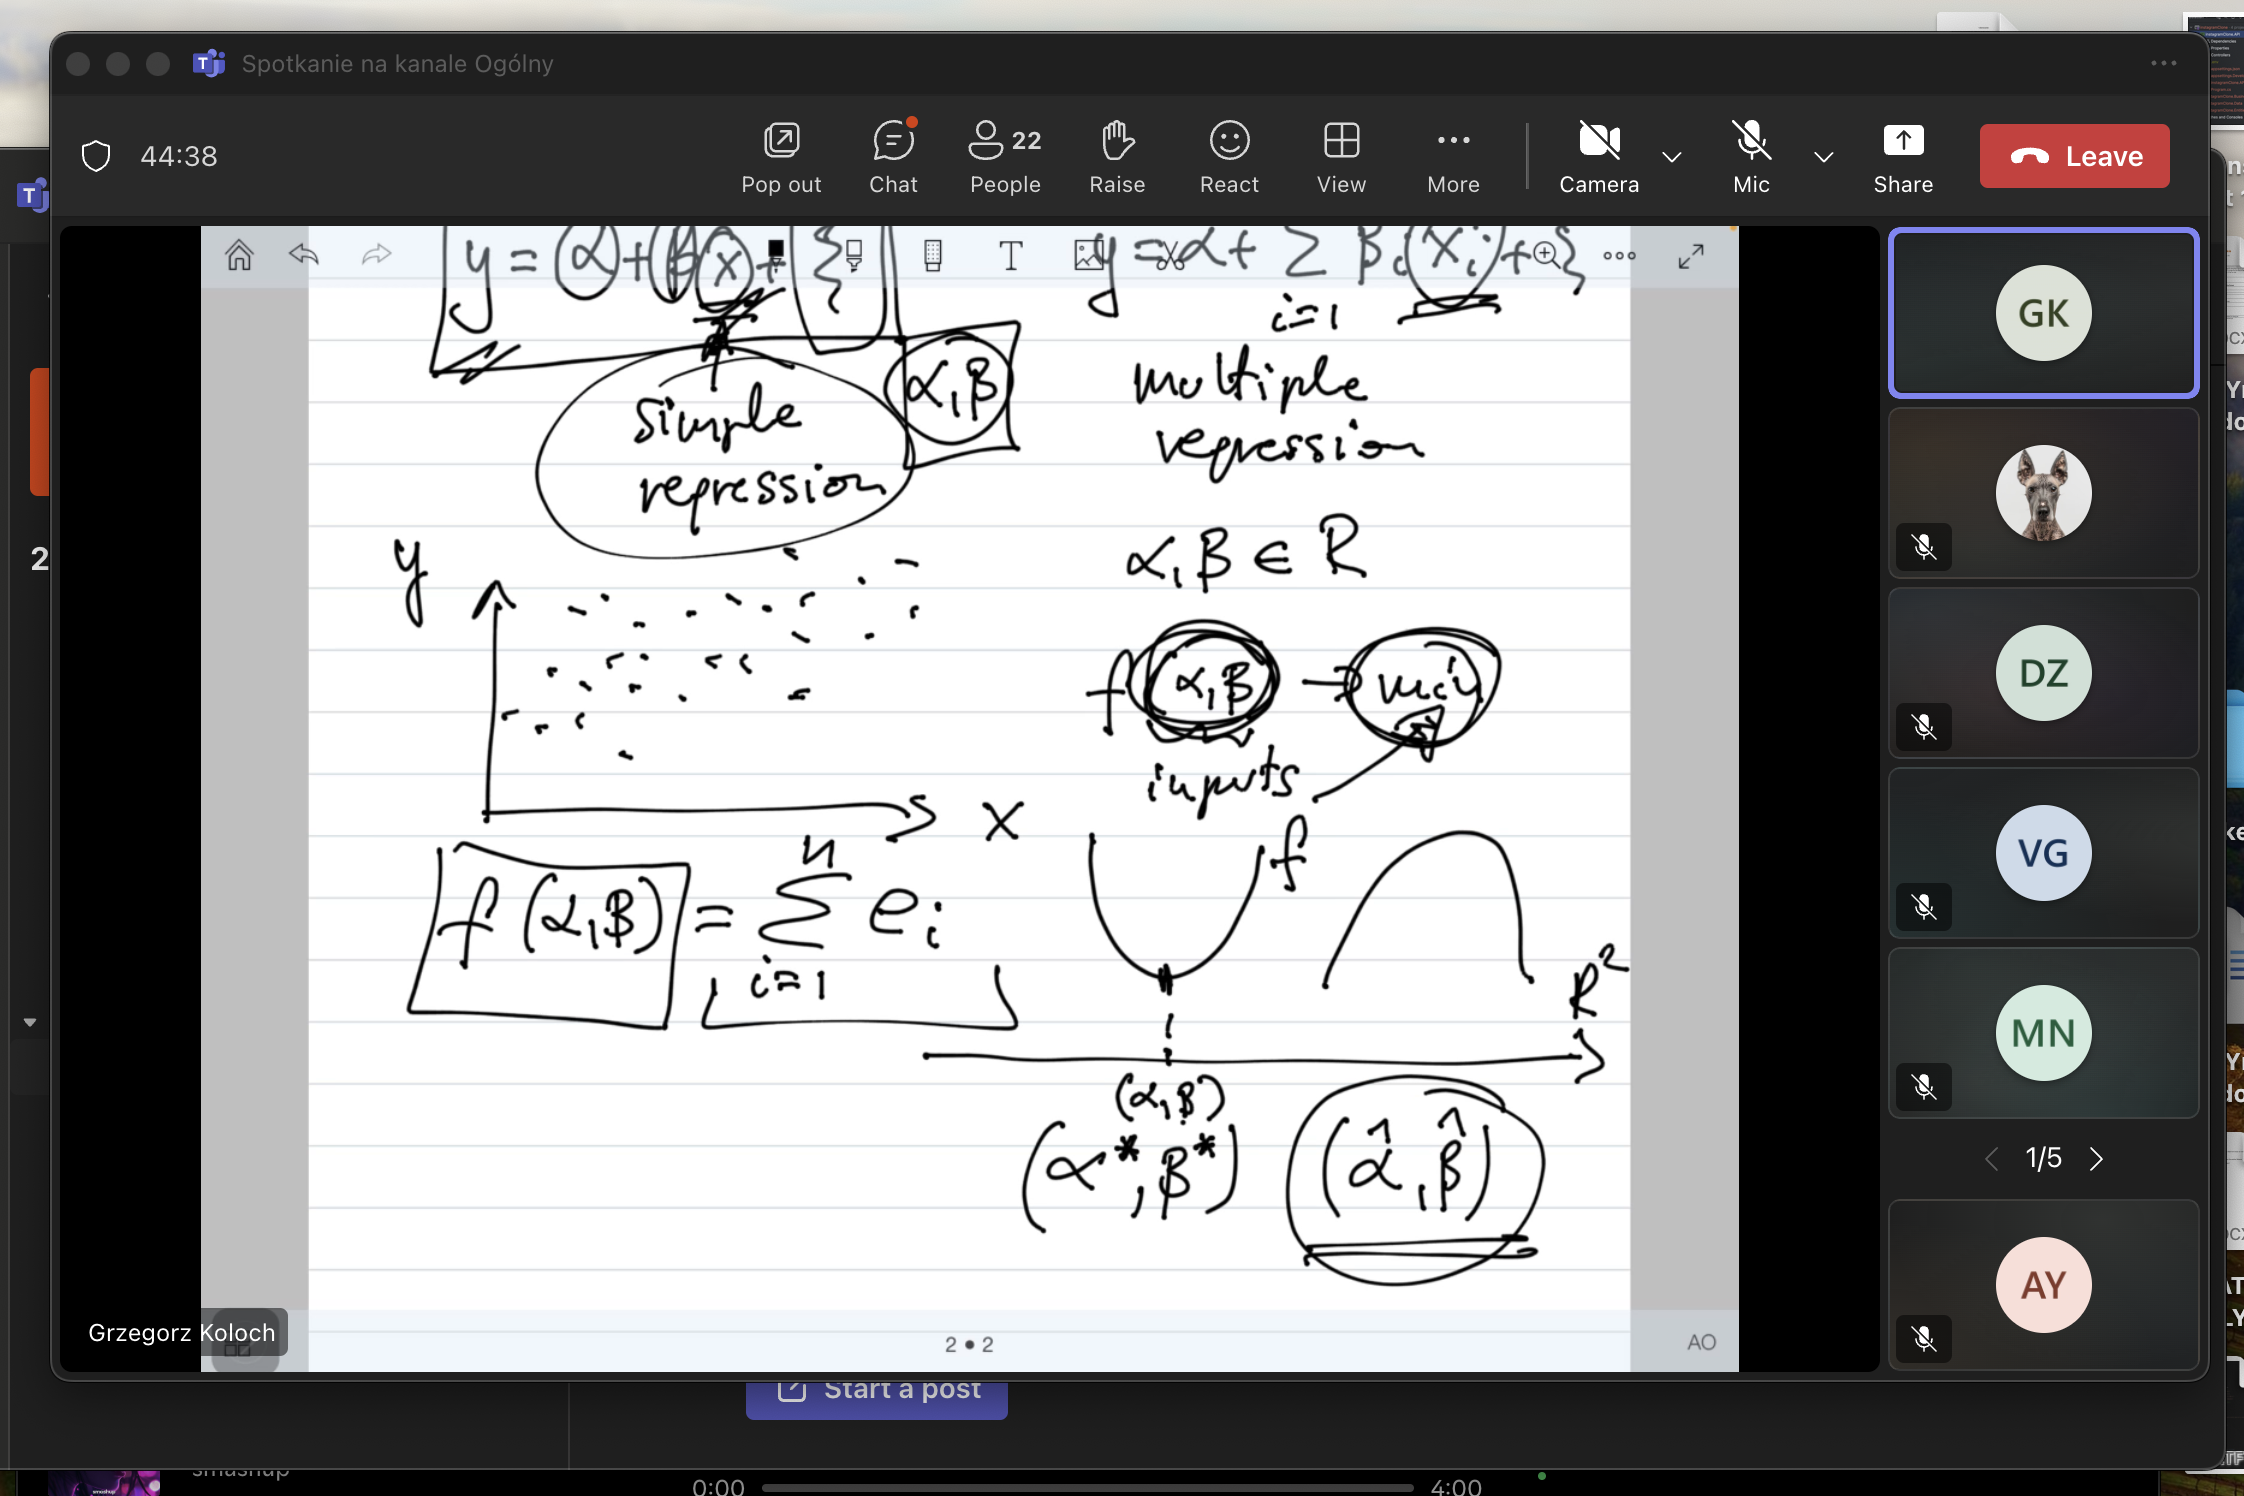 Spotkanie na kanale Ogólny
44:38
Pop out
Chat
22
People
Raise
React
View
More
Camera
Mic
Share
Leave
y = α + βx + ξ
y = α + Σ βi xi + ξ
i=1
α, β
simple
regression
multiple
regression
α, β ∈ R
y
x
f(α, β) → min
inputs
f
f(α, β) = Σ ei
n
i=1
R²
(α, β)
(α*, β*)
(α̂, β̂)
Grzegorz Koloch
2 • 2
AO
GK
DZ
VG
MN
1/5
AY
2
Start a post
smashup
0:00
4:00